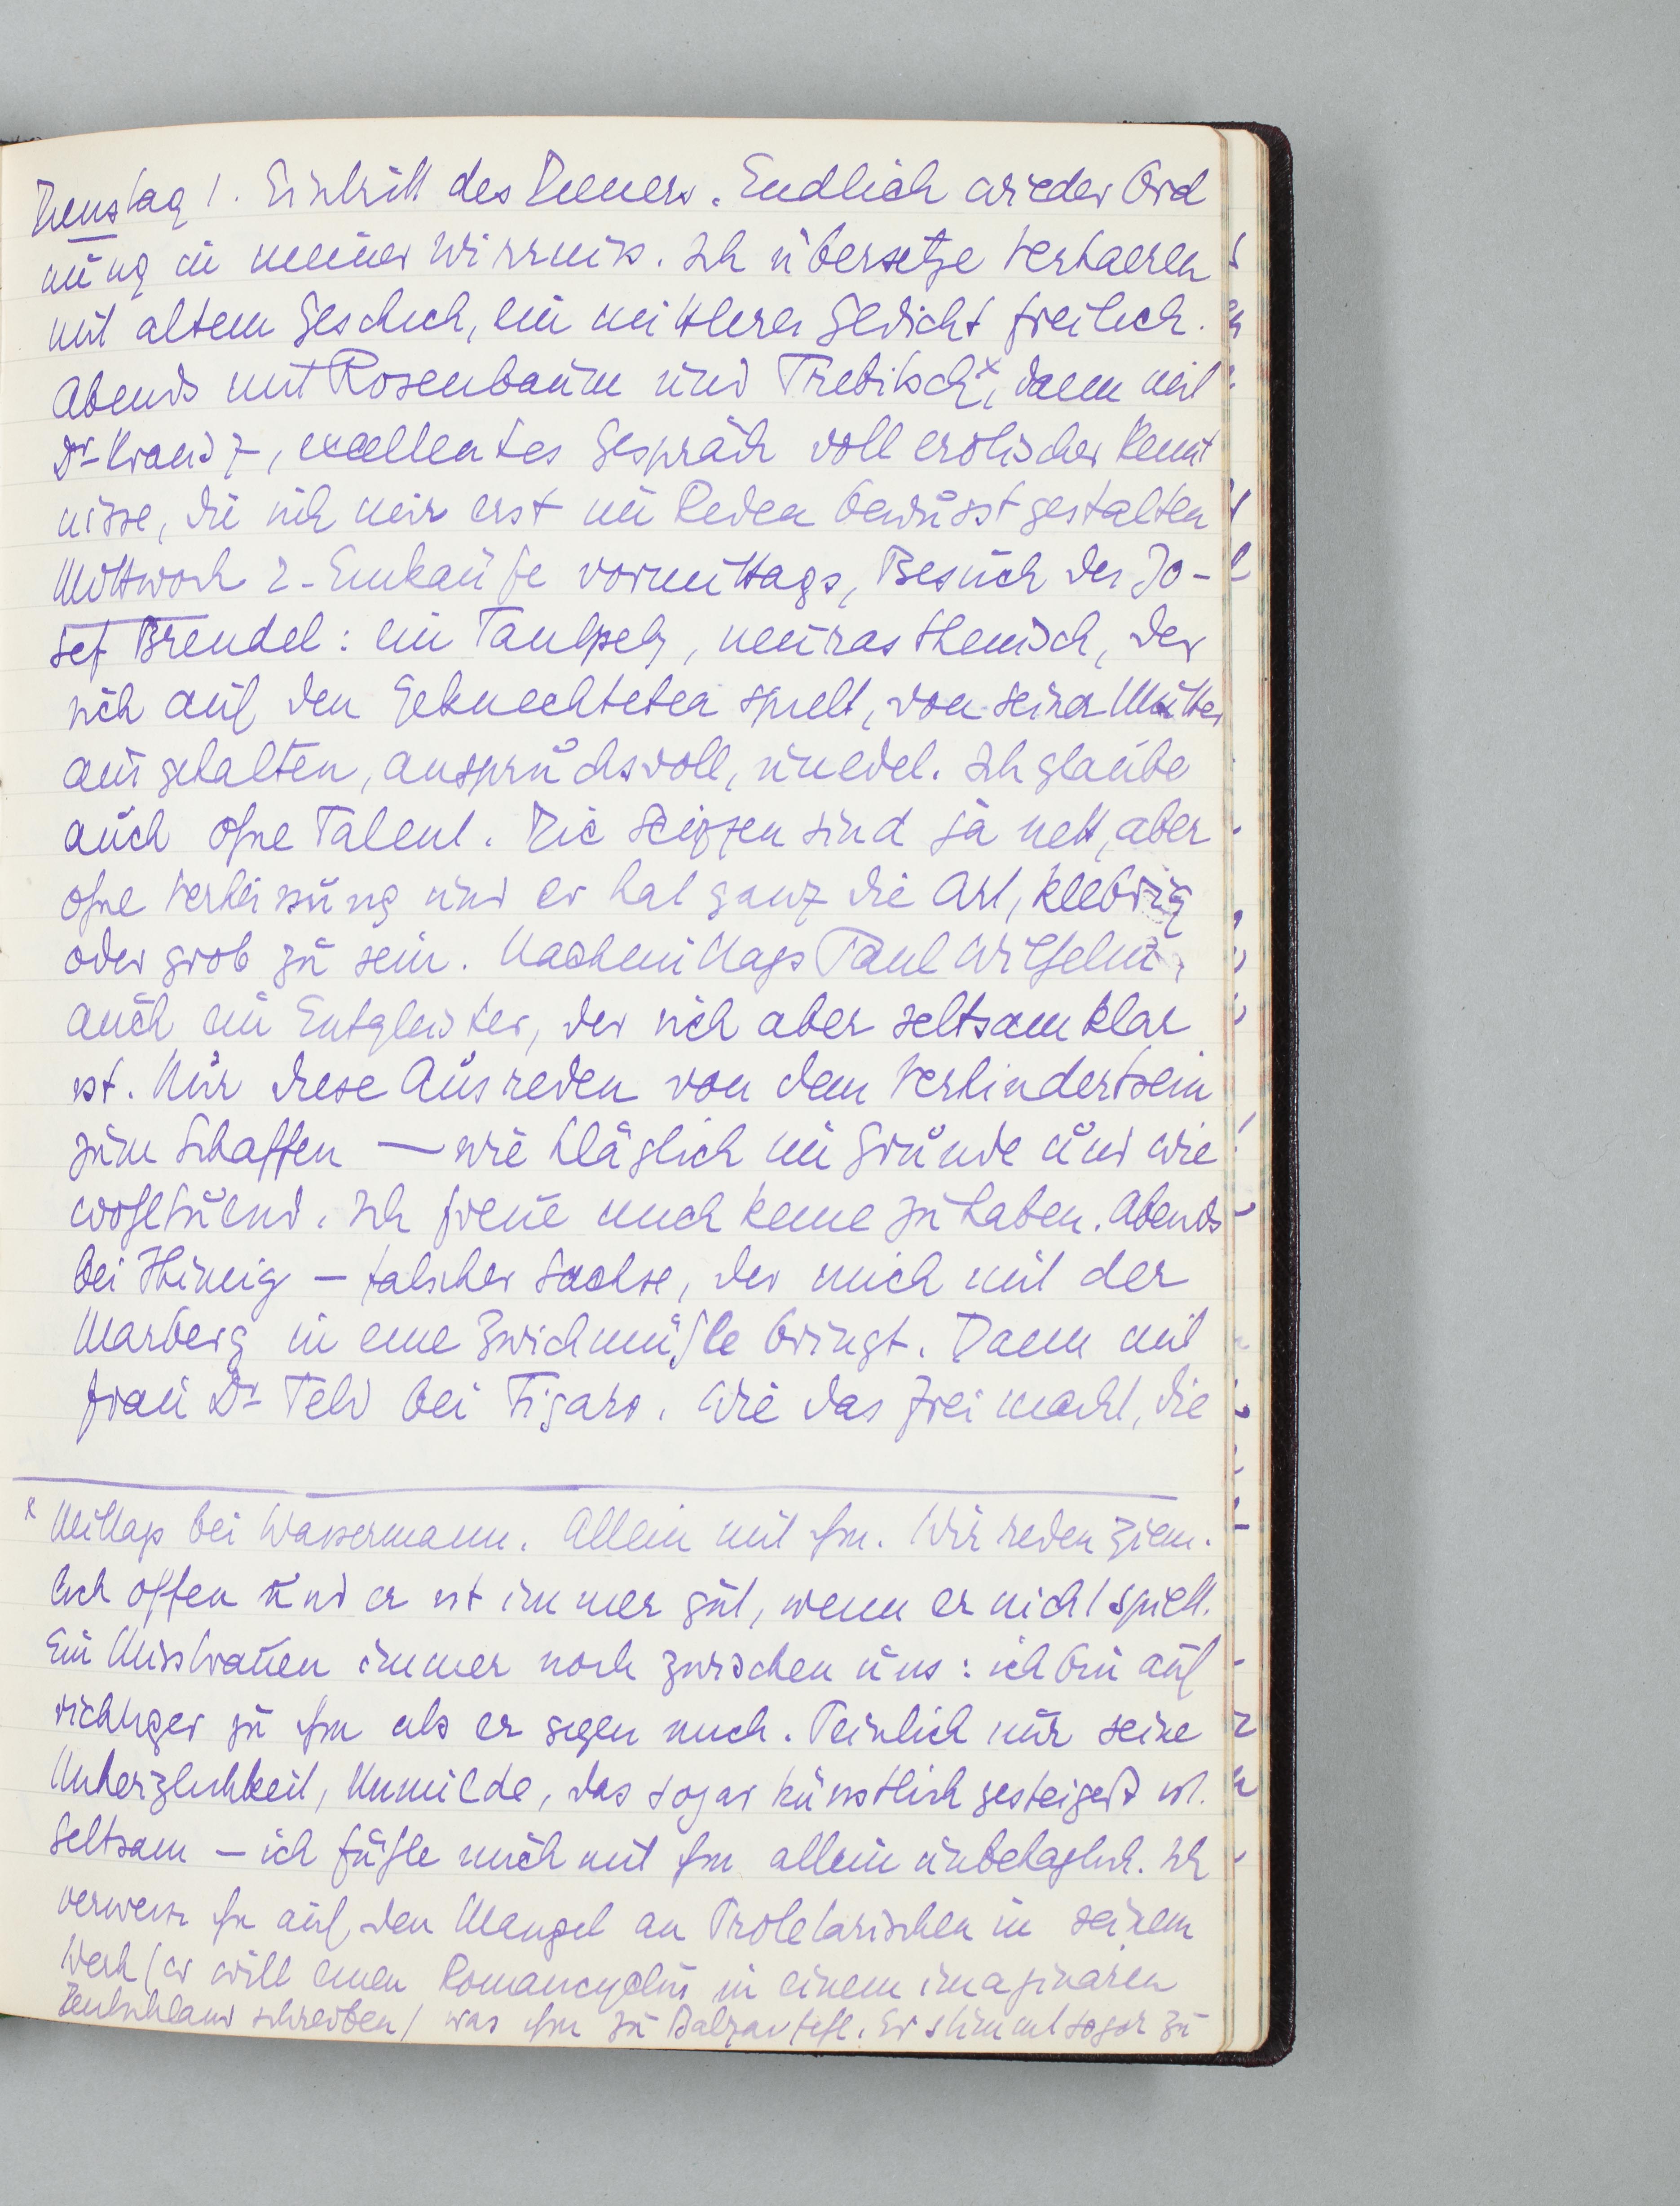 Dienstag 1. Eintritt des Dieners. Endlich wieder Ord
nung in meiner Wirrnis. Ich übersetze Verhaeren
mit altem Geschick, ein mittleres Gedicht freilich.
Abends mit Rosenbaum und Trebitsch x, dann mit
Dr Kranz, excellentes Gespräch voll erotischer Kennt
nisse, die sich mir erst im Reden bewusst gestalten
Mittwoch 2 - Einkäufe vormittags, Besuch des Jo-
sef Brendel: ein Tanlpelz, neurasthenisch, der
sich auf den Geknechteten spielt, von seiner Mutter
ausgehalten, anspruchsvoll, unedel. Ich glaube
auch ohne Talent. Die Skizzen sind ja nett, aber
ohne Verheissung und er hat ganz die Art, klebrig
oder grob zu sein. Nachmittags Paul Wilhelm,
auch ein Entgleister, der sich aber seltsam klar
ist. Nur diese Ausreden von dem Verhindertsein
zum Schaffen — wie kläglich im Grunde und wie
wohltuend. Ich freue mich keine zu haben. Abends
bei Thimig – falscher Sachse, der mich mit der
Marberg in eine Zwickmühle bringt. Dann mit
Frau Dr Feld bei Figaro. Wie das frei macht, die
x Mittags bei Wassermann. Allein mit ihm. Wir reden ziem-
lich offen und er ist immer gut, wenn er nicht spielt.
Ein Misstrauen immer noch zwischen uns: ich bin auf
richtiger zu ihm als er gegen mich. Peinlich nur seine
Unherzlichkeit, Unmilde, das sogar künstlich gesteigert ist.
Seltsam – ich fühle mich mit ihm allein unbehaglich. Ich
verweise ihn auf den Mangel an Proletarischen in seinem
Werk (er will einen Romancyclus in einem imaginären
Deutschland schreiben) was ihm zu Balzac fehlt. Er stimmt sogar zu